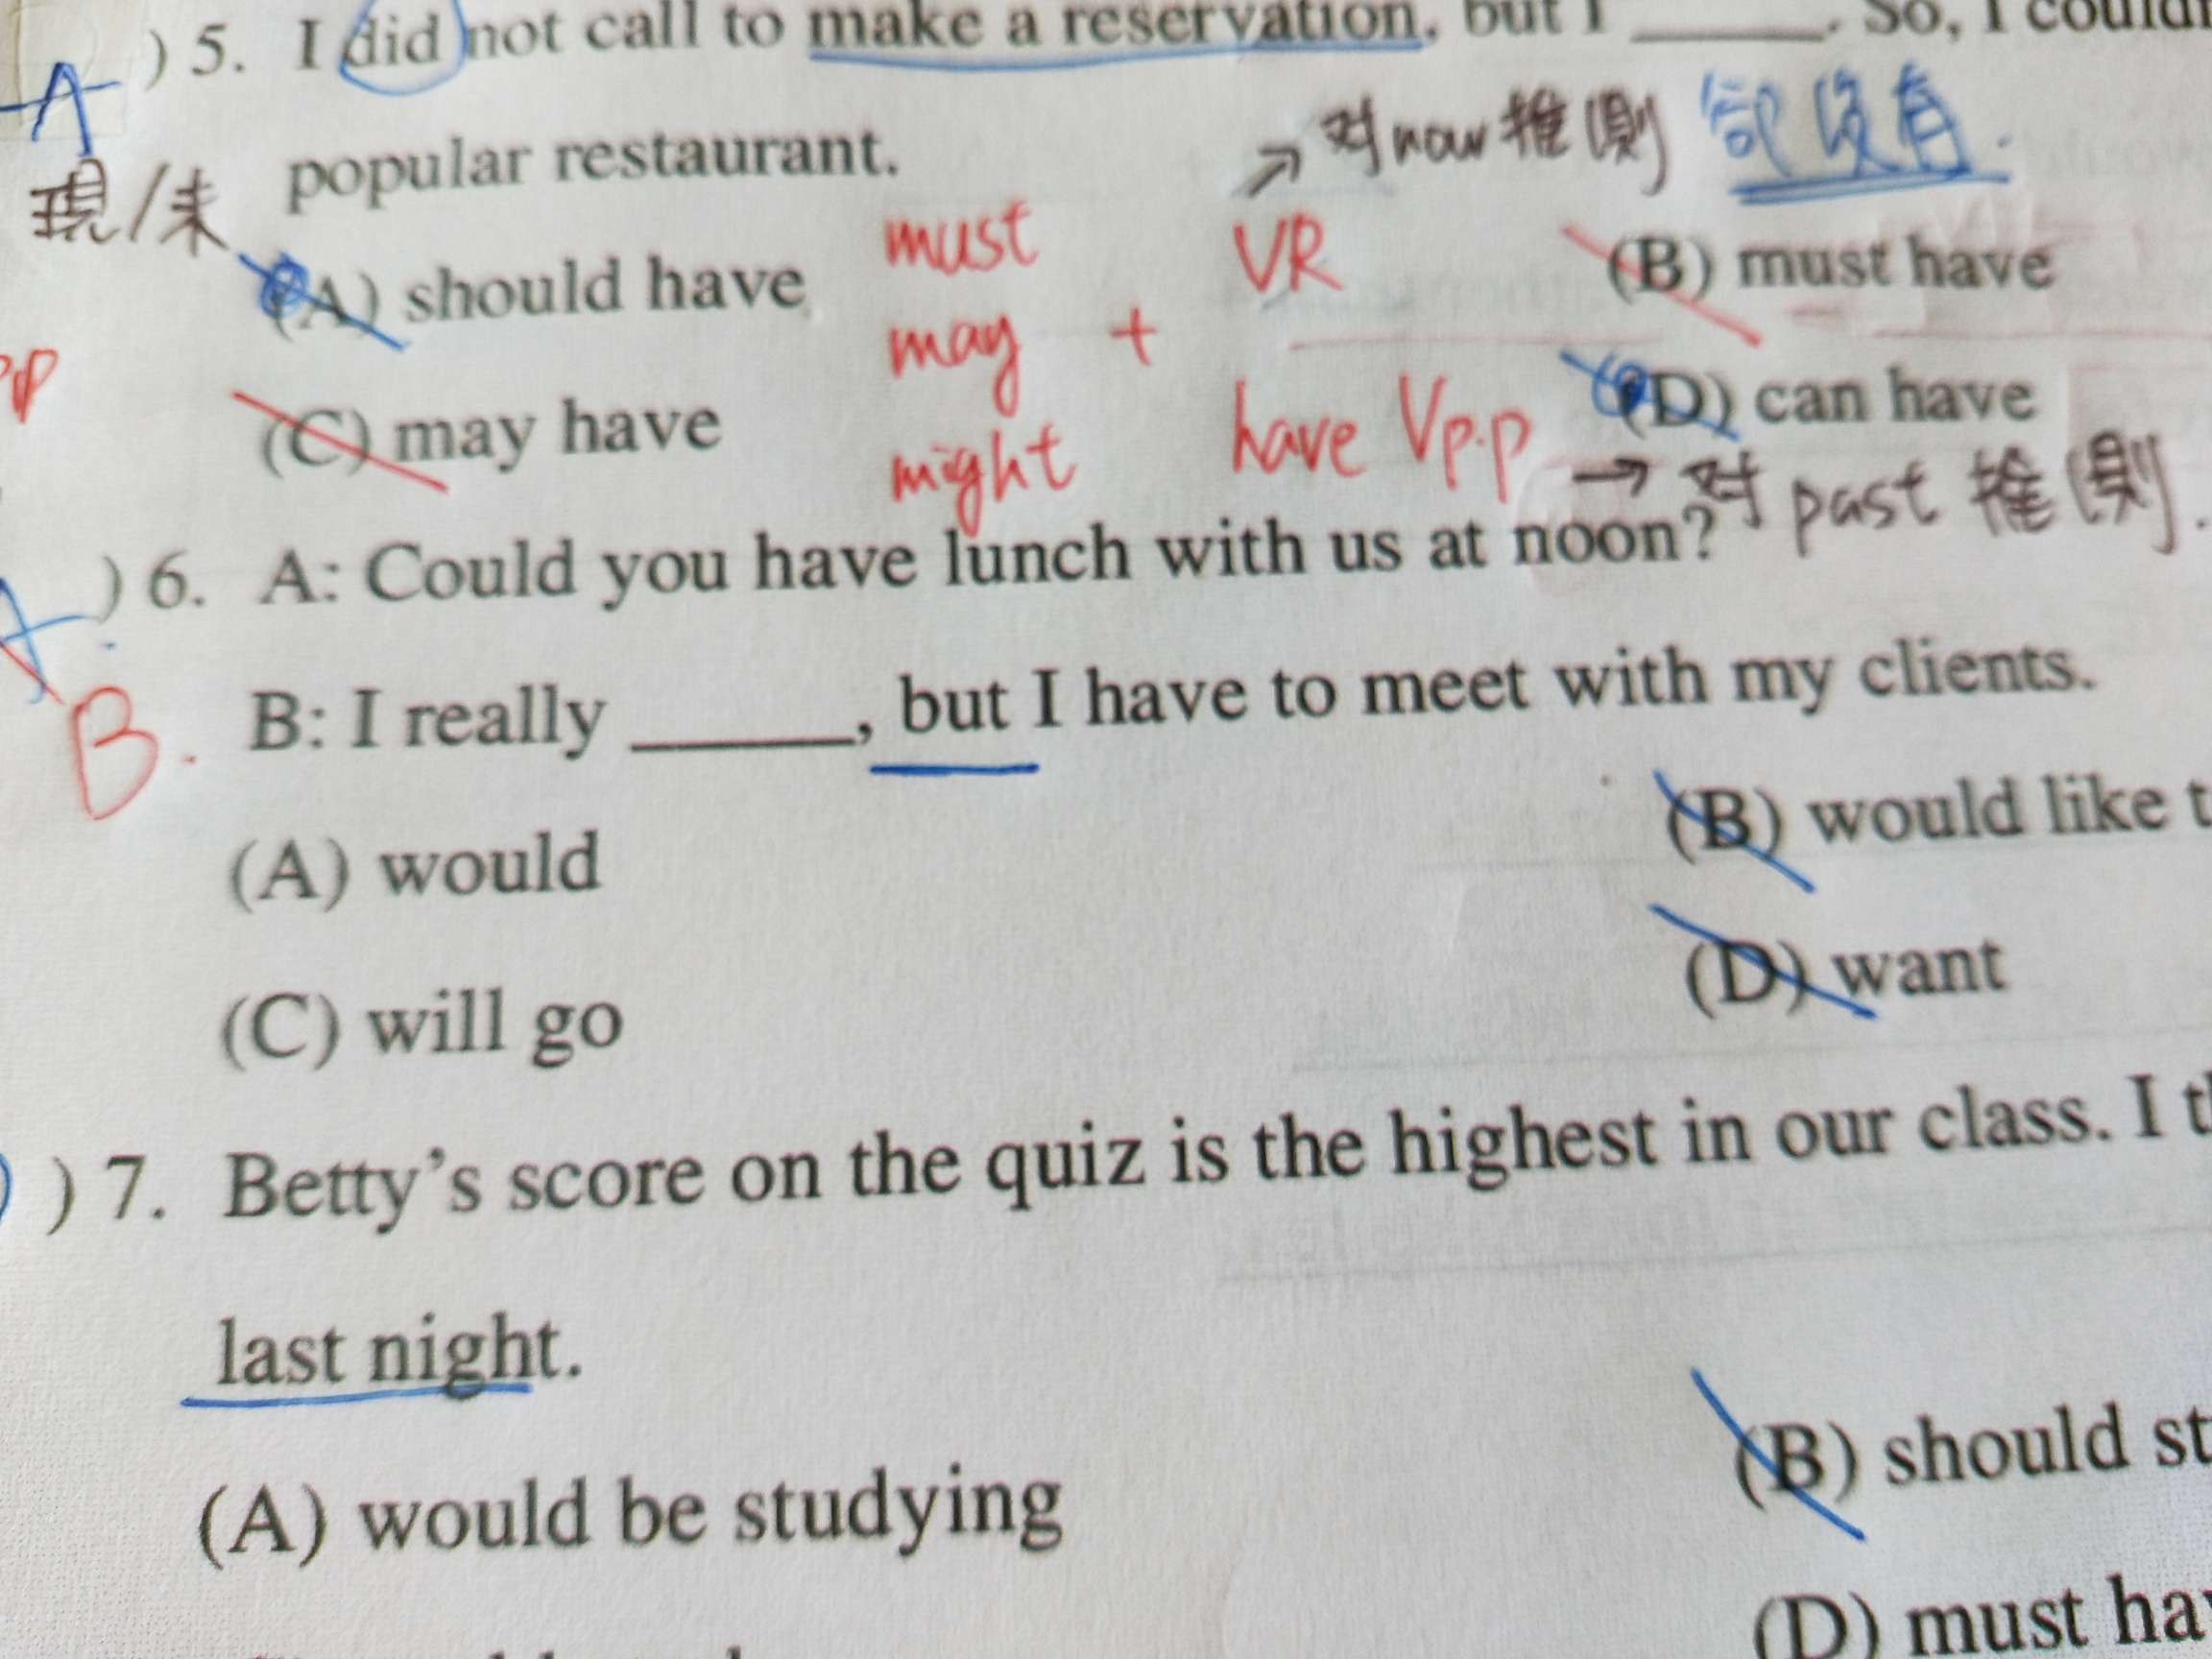 ) 5. I did not call to make a reservation, but I ______. So, I
A
popular restaurant.
現/未
→ 对now推測 卻沒有.
(A) should have
must
may
might
+
VR
have Vp.p
(B) must have
(C) may have
(D) can have
→ 对past推測.
) 6. A: Could you have lunch with us at noon?
A
B.
B: I really ______, but I have to meet with my clients.
(A) would
(B) would like
(C) will go
(D) want
) 7. Betty's score on the quiz is the highest in our class. I
last night.
(A) would be studying
(B) should
(D) must